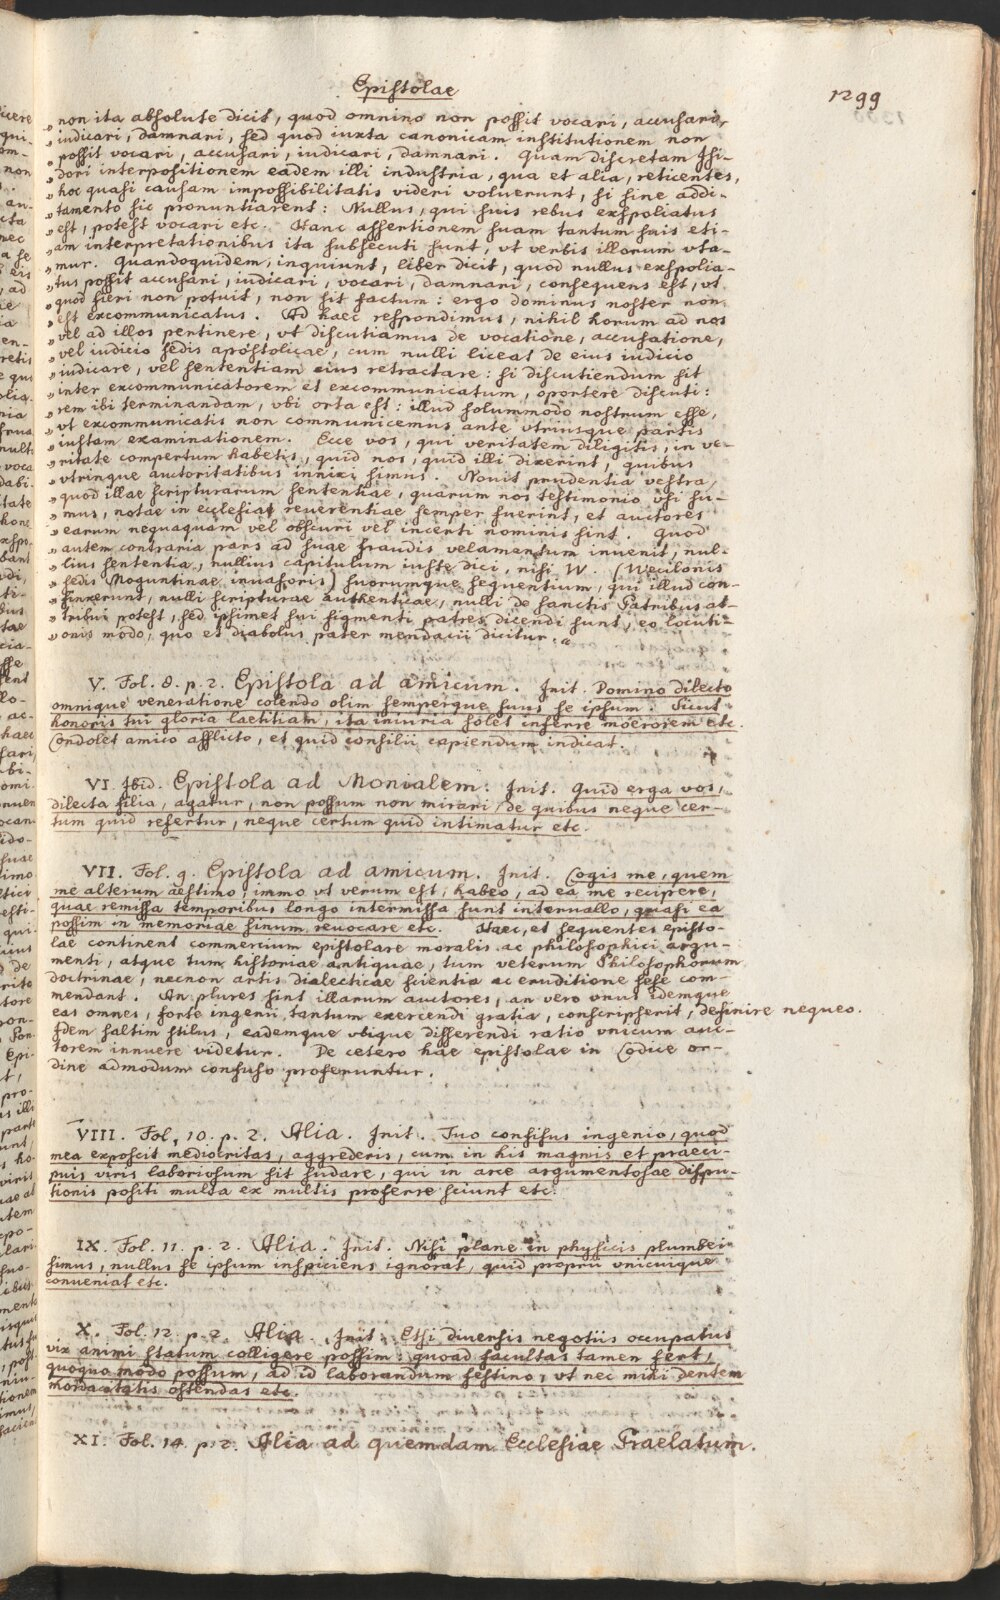 Epistolae
1299
" non ita absolute dicit, quod omnino non possit vocari, accusari,
" iudicari, damnari, sed quod iuxta canonicam institutionem non
" possit vocari, accusari, iudicari, damnari. Quam discretam Isi-
" dori interpositionem eadem illi industria, qua et alia, reticentes,
" hoc quasi causam impossibilitatis videri voluerunt, si sine addi-
" tamento sic pronuntiarent: Nullus, qui suis rebus exspoliatus
" est, potest vocari etc. Hanc assertionem suam tantum suis eti-
" am interpretationibus ita subsecuti sunt, vt verbis illorum vta-
" mur. Quandoquidem, inquiunt, liber dicit, quod nullus exspolia-
" tus possit accusari, iudicari, vocari, damnari, consequens est, vt
" quod fieri non potuit, non sit factum: ergo dominus noster non
" est excommunicatus. Ad haec respondimus, nihil horum ad nos
" vel ad illos pertinere, vt discutiamus de vocatione, accusatione,
" vel iudicio sedis apostolicae, cum nulli liceat de eius iudicio
" iudicare, vel sententiam eius retractare: si discutiendum sit
" inter excommunicatorem et excommunicatum, oportere discuti:
" rem ibi terminandam, vbi orta est: illud solummodo nostrum esse,
" vt excommunicatis non communicemus ante vtriusque partis
" iustam examinationem. Ecce vos, qui veritatem diligitis, in ve-
" ritate compertum habetis, quid nos, quid illi dixerint, quibus
" vtrinque auctoritatibus innixi simus. Nouit prudentia vestra,
" quod illae scripturarum sententiae, quarum nos testimonio vsi su-
" mus, notae in ecclesia, reuerentiae semper fuerint, et auctores
" earum nequaquam vel obscuri vel incerti nominis sint. Quod
" autem contraria pars ad suae fraudis velamentum inuenit, nul-
" lius sententia, nullius capitulum iuste dici, nisi W. (Wecilonis
" sedis Moguntinae inuasoris) suorumque sequentium, qui illud con-
" finxerunt, nulli scripturae authenticae, nulli de sanctis Patribus at-
" tribui potest, sed ipsimet sui figmenti patres dicendi sunt, eo locuti-
" onis modo, quo et diabolus pater mendacii dicitur.
V. Fol. 8. p. 2. Epistola ad amicum. Init. Domino dilecto
omnique veneratione colendo olim semperque suus se ipsum. Sicut
honoris tui gloria laetitiam, ita iniuria solet inferre moerorem etc.
Condolet amico afflicto, et quid consilii capiendum indicat.
VI. Ibid. Epistola ad Monialem. Init. Quid erga vos,
dilecta filia, agatur, non possum non mirari, de quibus neque cer-
tum quid refertur, neque certum quid intimatur etc.
VII. Fol. 9. Epistola ad amicum. Init. Cogis me, quem
me alterum aestimo, immo vt verum est, habeo, ad ea me recipere,
quae remissa temporibus longo intermissa sunt interuallo, quasi ea
possim in memoriae sinum reuocare etc. Haec, et sequentes episto-
lae continent commercium epistolare moralis ac philosophici argu-
menti, atque tum historiae antiquae, tum veterum Philosophorum
doctrinae, necnon artis dialecticae scientia ac eruditione sese com-
mendant. An plures sint illarum auctores, an vero vnus idemque
eas omnes, forte ingenii tantum exercendi gratia, conscripserit, definire nequeo.
Idem saltim stilus, eademque vbique disserendi ratio vnicum auc-
torem innuere videtur. De cetero hae epistolae in Codice or-
dine admodum confuso proferuntur.
VIII. Fol. 10. p. 2. Alia. Init. Tuo confisus ingenio, quod
mea exposcit mediocritas, aggrederis, cum in his magnis et praeci-
puis viris laboriosum sit sudare, qui in arce argumentosae dispu-
tionis positi multa ex multis proferre sciunt etc.
IX. Fol. 11. p. 2. Alia. Init. Nisi plane in physicis plumbei
simus, nullus se ipsum inspiciens ignorat, quid proprii vnicuique
conveniat etc.
X. Fol. 12. p. 2. Alia. Init. Etsi diuersis negotiis occupatus
vix animi statum colligere possim: quoad facultas tamen fert,
quoquo modo possum, ad id laborandum festino, vt nec mihi dentem
mordacitatis ostendas etc.
XI. Fol. 14. p. 2. Alia ad quemdam Ecclesiae Praelatum.